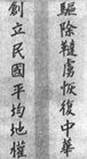 驅除韃虜恢復中華
創立民國平均地權